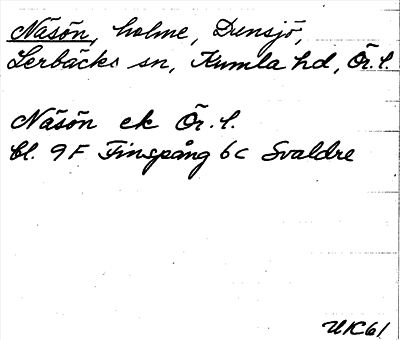 Näsön, holme, Dunsjö,
Lerbäcks sn, Kumla hd, Ör. l.
Näsön ek Ör. l.
bl. 9F Finspång 6c Svaldre
UK61